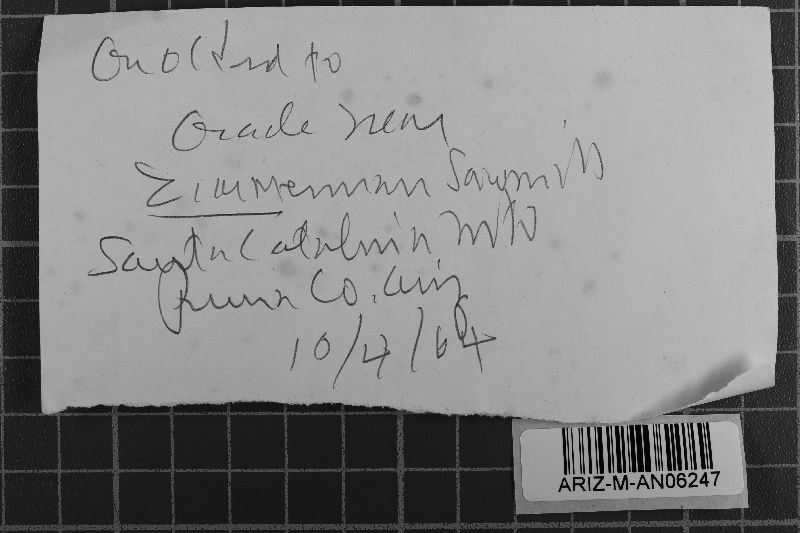 On old rd to
Oracle near
Zimmerman Sawmill
Santa Catalina Mts
Pima Co. Ariz
10/4/64
ARIZ-M-AN06247